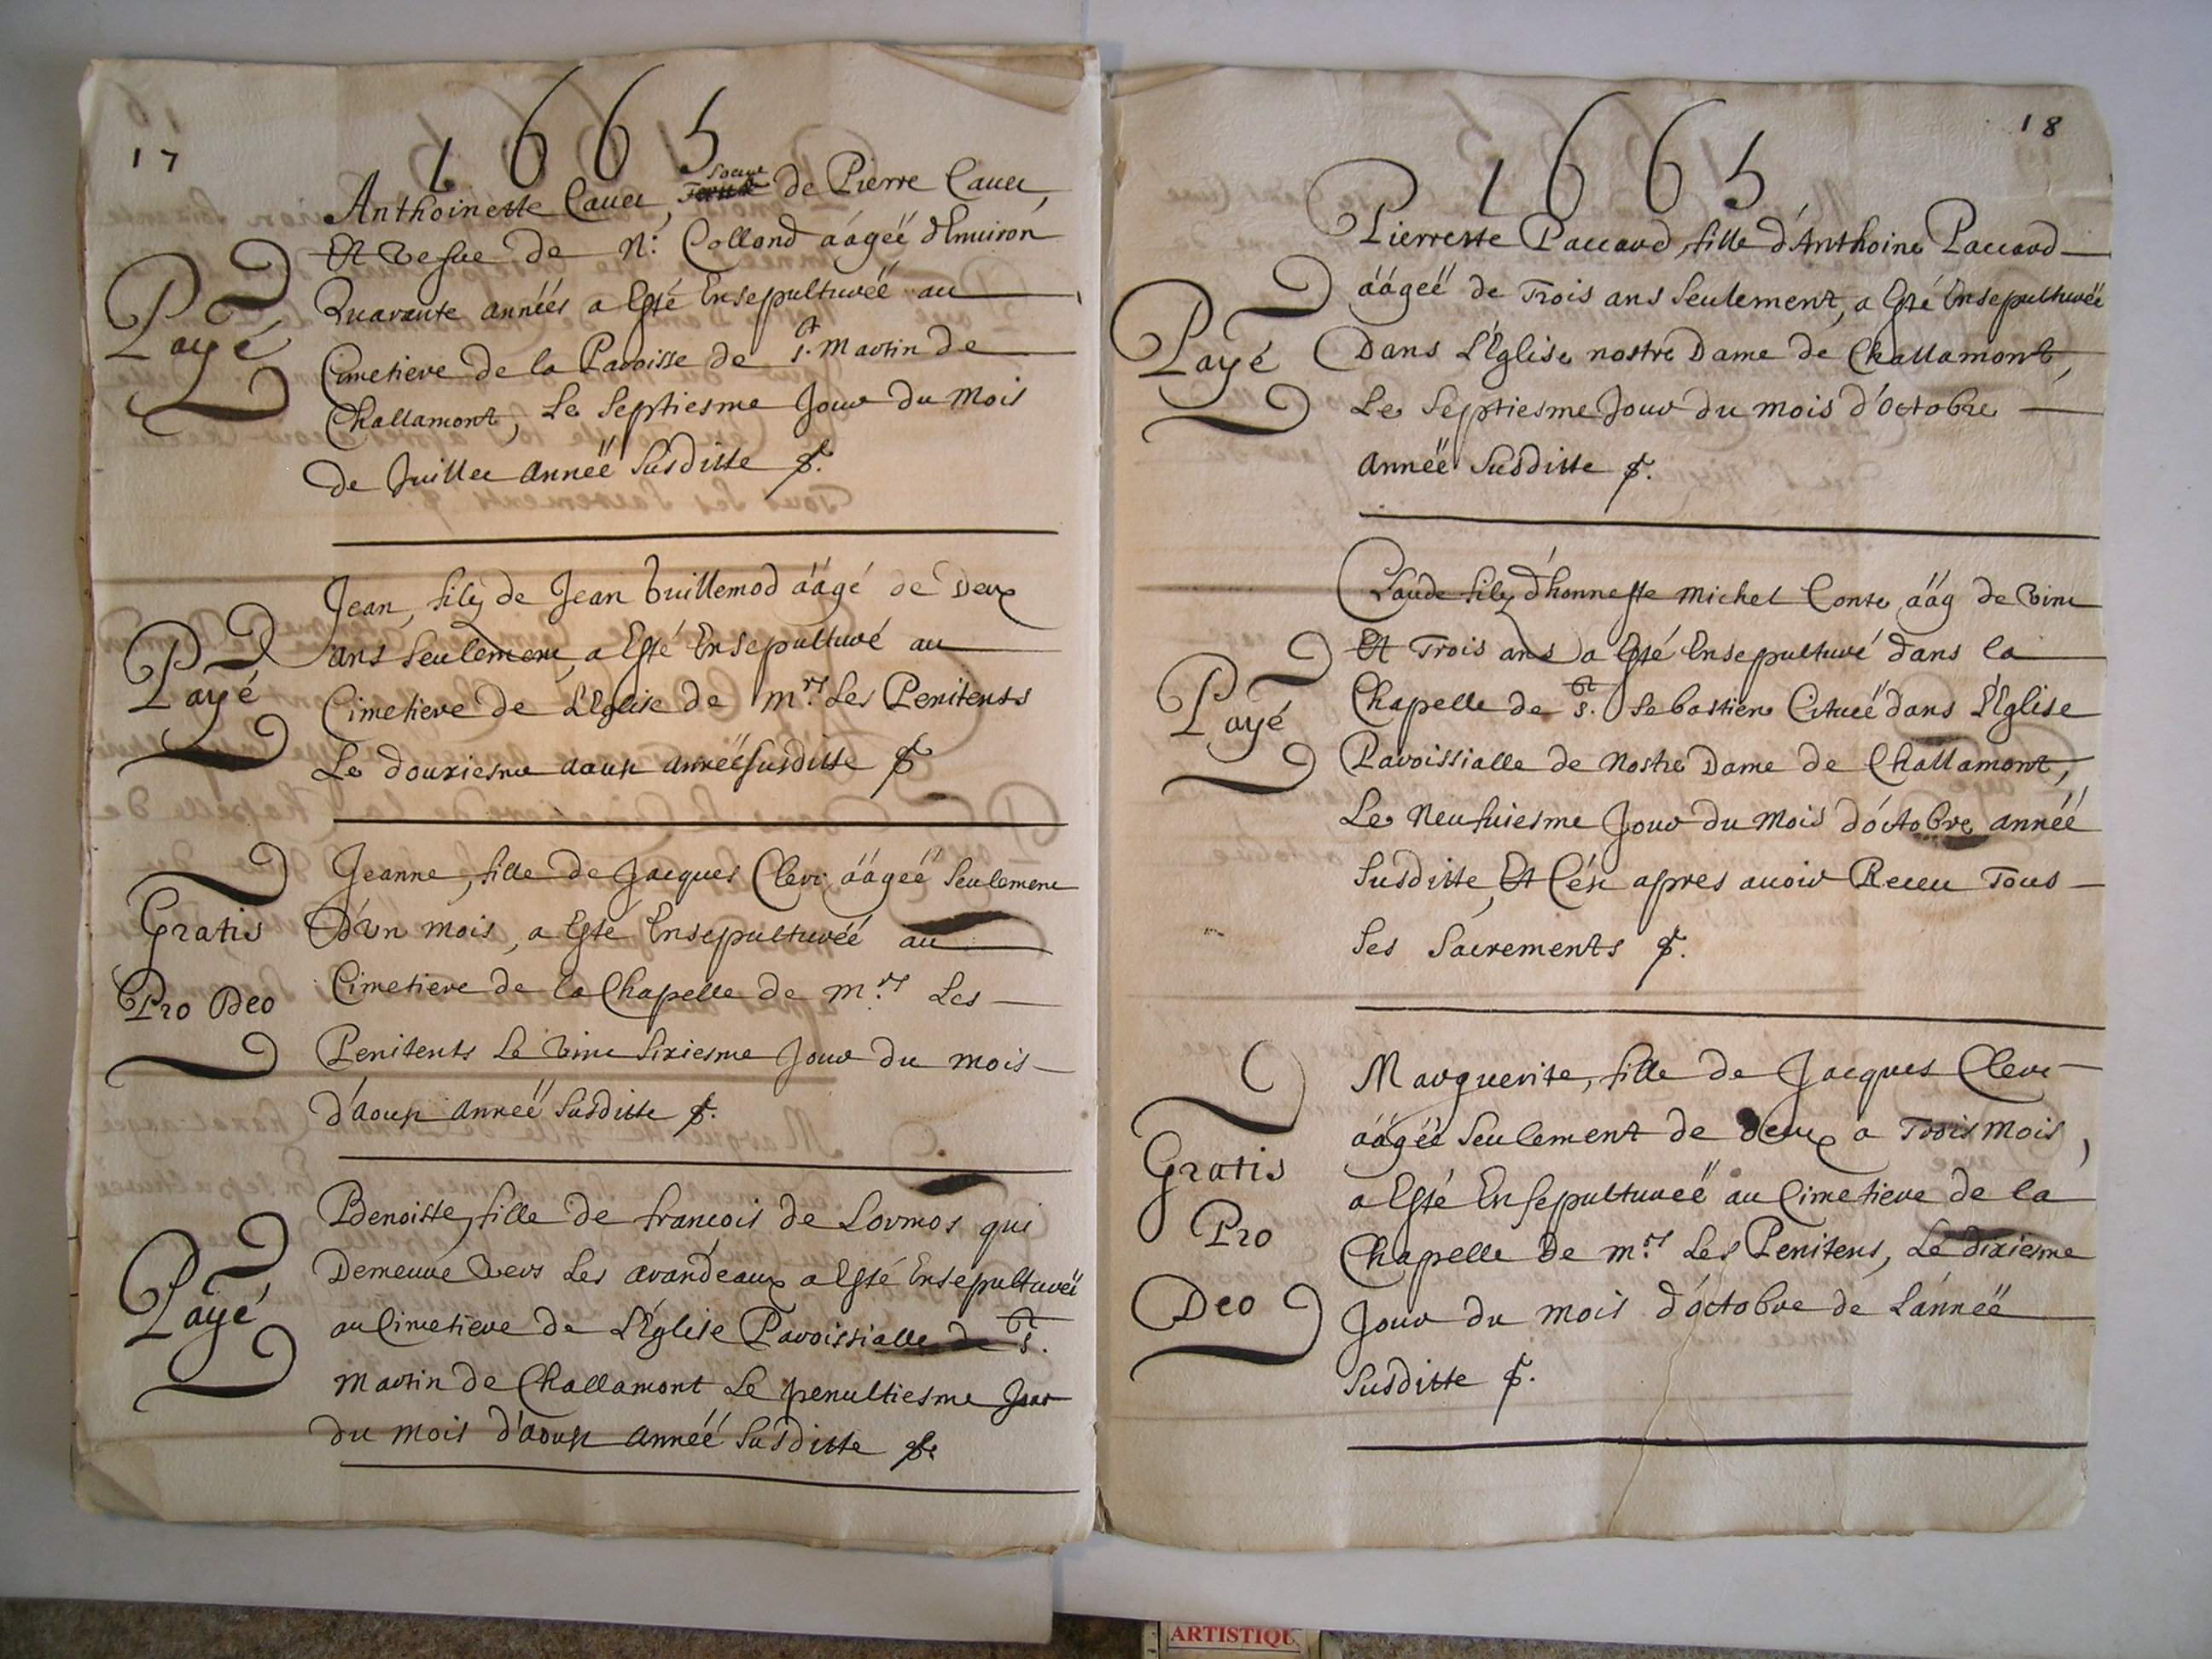 17
1665
Anthoinette Cauet, soeur de Pierre Cauet,
Et vefue de N: Collond ààgeë d'Enuiron
Quarante annéés a Esté Ensepulturéë au
Cimetiere de la Paroisse de St. Martin de
Challamont, Le Septiesme Jour du Mois
de Juillet annéë Susditte
Payé
Jean, filz de Jean Vuillemod ààgé de Deux
ans Seulement, a Esté Ensepulturé au
Cimetiere de L'Eglise de Mrs. Les Penitents
Le douxiesme aoust annéë Susditte
Payé
Jeanne, fille de Jacques Clerc ààgéé Seulement
D'Vn mois, a Esté Ensepulturéé au
Cimetiere de la Chapelle de Mrs. Les
Penitents Le Vint Sixiesme Jour du mois
d'aoust annéë Susditte
Gratis
Pro Deo
Benoitte, fille de françois de Lormos qui
Demeure Vers Les auandeaux a Esté Ensepulturéë
au Cimetiere de L'Eglise Paroissialle de St.
Martin de Challamont Le penultiesme Jour
du mois d'aoust annéé Susditte
Payé
18
1665
Pierrette Paccard, fille d'Anthoine Paccard
ààgeë de Trois ans Seulement, a Esté Ensepulturéë
Dans L'Eglise nostre Dame de Challamont,
Le Septiesme Jour du mois d'octobre
annéë Susditte
Payé
Claude filz d'honneste Michel Conte, ààg de Vint
Et Trois ans a Esté Ensepulturé dans la
Chapelle de St. Sebastien Cituéë dans L'Eglise
Paroissialle de Nostre Dame de Challamont,
Le Neufuiesme Jour du Mois d'octobre annéé
Susditte, Et C'est apres auoir Receu Tous
Ses Sacrements
Payé
Marguerite, fille de Jacques Clerc
ààgéé Seulement de deux a Trois mois,
a Esté Ensepulturéë au Cimetiere de la
Chapelle de Mrs. Les Penitens, Le dixiesme
Jour du mois d'octobre de L'annéë
Susditte
Gratis
Pro
Deo
ARTISTIQU